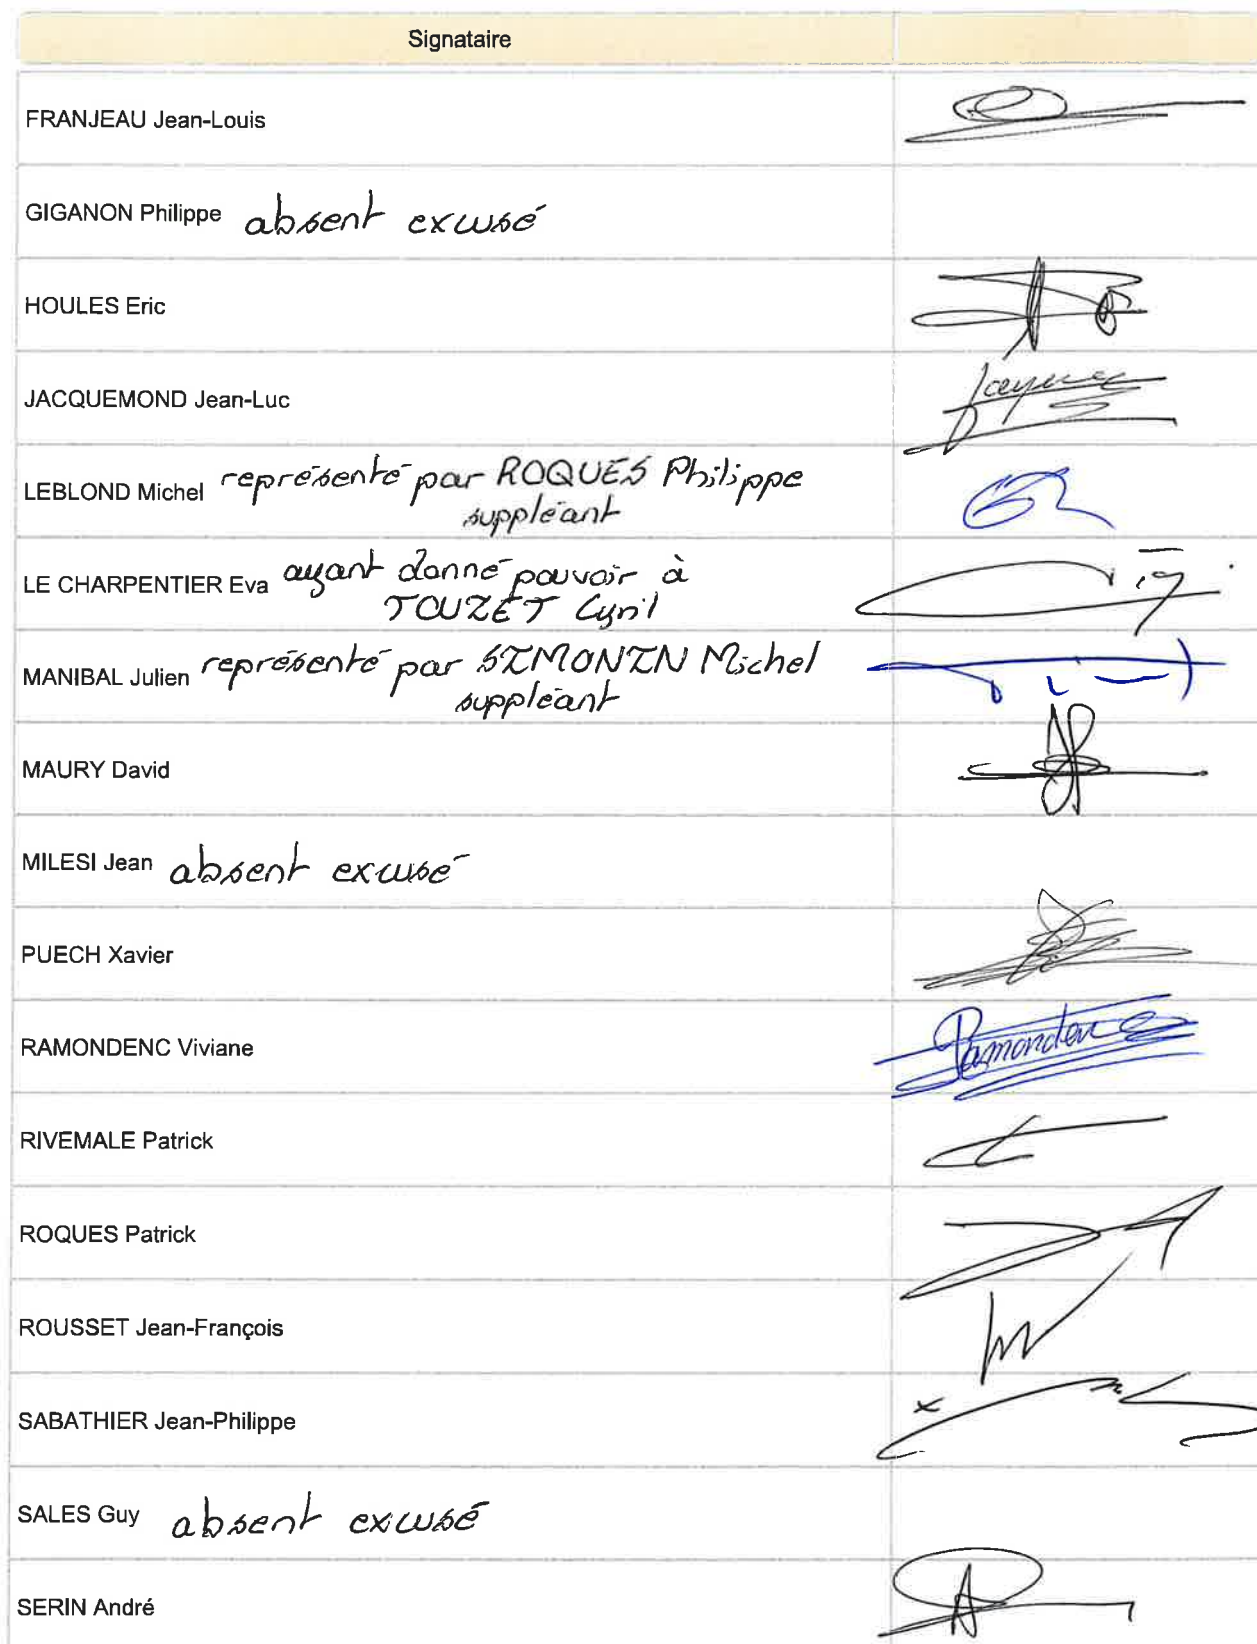 Signataire
FRANJEAU Jean-Louis
GIGANON Philippe absent excusé
HOULES Eric
JACQUEMOND Jean-Luc
LEBLOND Michel représenté par ROQUES Philippe
suppléant
LE CHARPENTIER Eva ayant donné pouvoir à
TOUZET Cyril
MANIBAL Julien représenté par SIMONIN Michel
suppléant
MAURY David
MILESI Jean absent excusé
PUECH Xavier
RAMONDENC Viviane
Ramondenc
RIVEMALE Patrick
ROQUES Patrick
ROUSSET Jean-François
SABATHIER Jean-Philippe
x
SALES Guy absent excusé
SERIN André